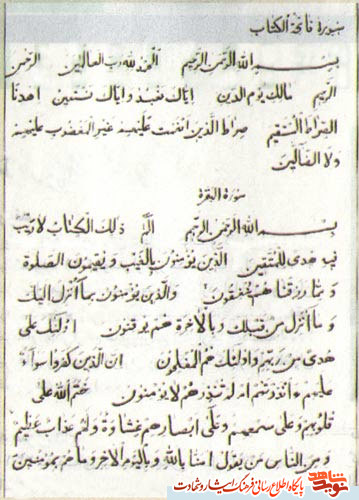 سورة فاتحة الكتاب
بسم الله الرحمن الرحيم الحمد لله رب العالمين الرحمن
الرحيم مالك يوم الدين اياك نعبد واياك نستعين اهدنا
الصراط المستقيم صراط الذين انعمت عليهم غير المغضوب عليهم
ولا الضالين
سورة البقرة
بسم الله الرحمن الرحيم الم ذلك الكتاب لا ريب
فيه هدى للمتقين الذين يؤمنون بالغيب ويقيمون الصلوة
ومما رزقناهم ينفقون والذين يؤمنون بما انزل اليك
وما انزل من قبلك وبالآخرة هم يوقنون اولئك على
هدى من ربهم واولئك هم المفلحون ان الذين كفروا سواء
عليهم ءانذرتهم ام لم تنذرهم لا يؤمنون ختم الله على
قلوبهم وعلى سمعهم وعلى ابصارهم غشاوة ولهم عذاب عظيم
ومن الناس من يقول امنا بالله وباليوم الآخر وما هم بمؤمنين
پایگاه اطلاع رسانی فرهنگ ایثار و شهادت
نوید شاهد